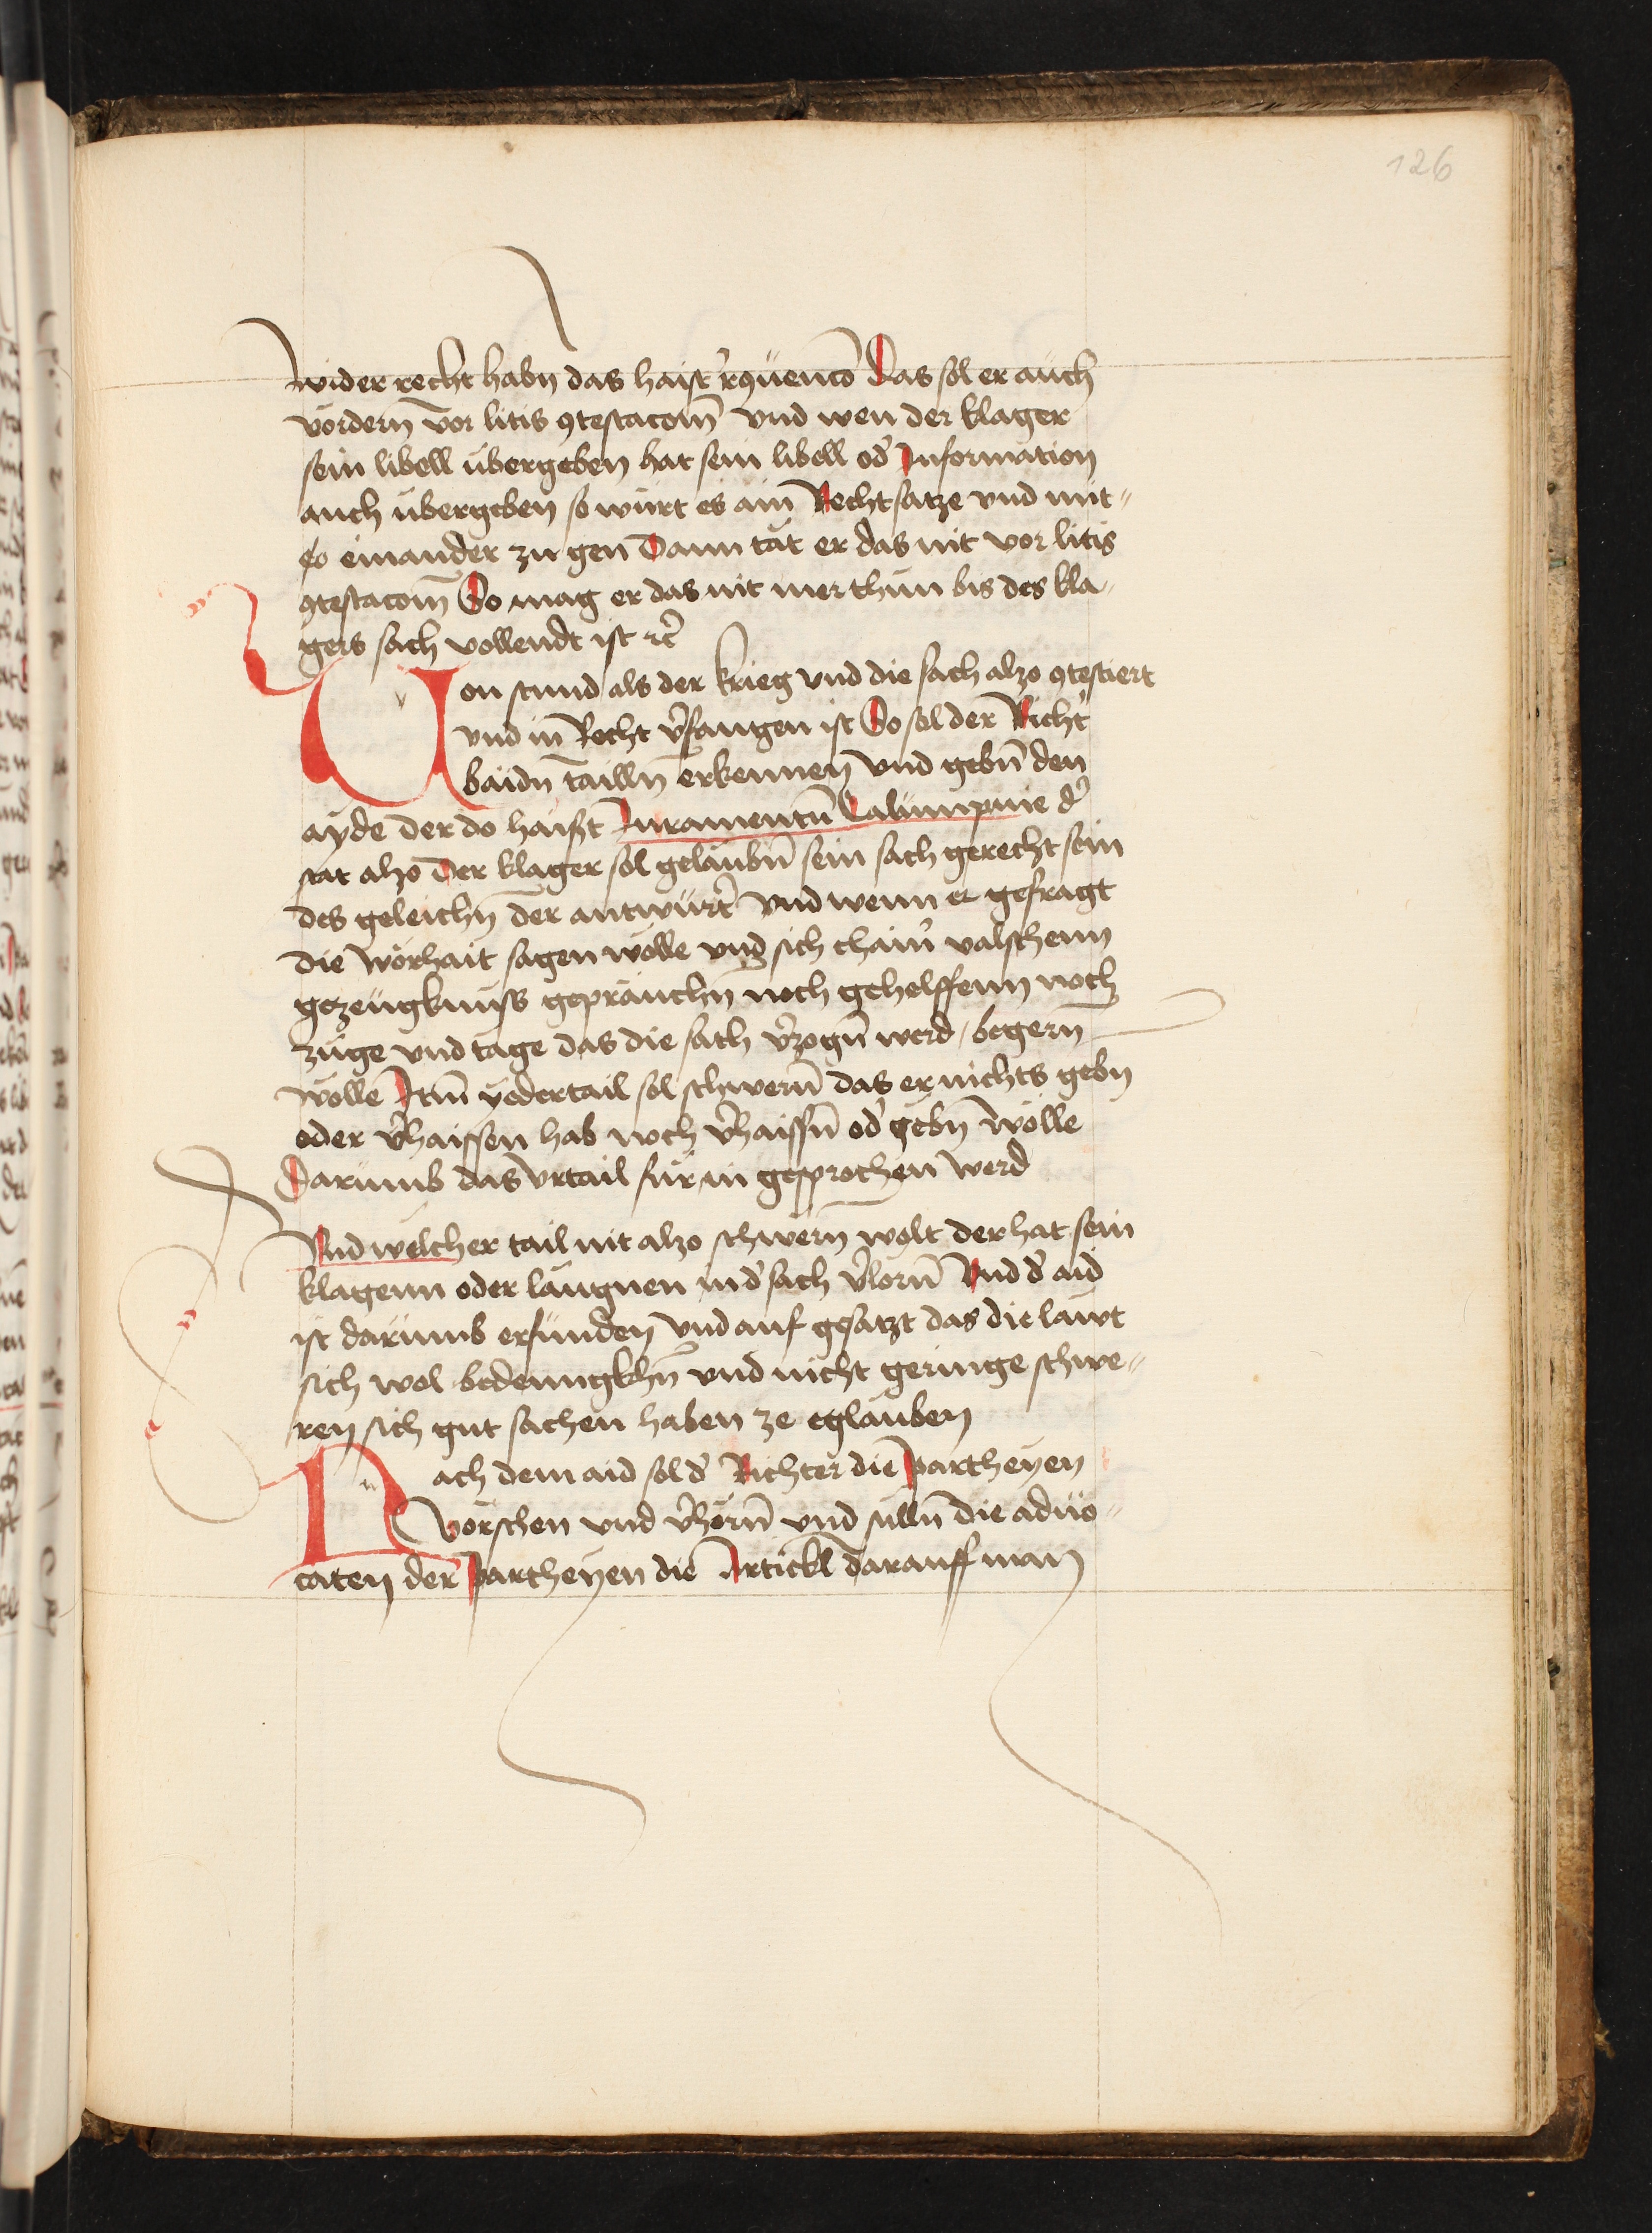 126
wider recht habn das haist r̉ꝯuencō Das sol er auch
vordern̄ vor litis ꝯtestacom̄ vnd wen der klager
sein libell übergeben hat sein libell od̓ Information
auch übergeben so würt es ain Rechtsatze vnd mit⸗
einander zu gen Dann tät er das nit vor litis
ꝯtestacom̄ So mag er das nit mer thun bis des kla⸗
gers sach vollendt ist ꝛc̓
Von stund als der krieg vnd die sach alzo ꝯtestiert
vnd in Recht v̓fangen ist So sol der Richt̓
baidn̄ tailln̄ erkennen vnd gebn̄ den
ayde der do haist Iuramentū Calumpnie d̓
stät alzo Der klager sol gelaubn̄ sein sach gerecht sein
des geleichn̄ der antwürt̓ vnd wenn er gefragt
die worhait sagen wolle vnd sich chain̓ valschenn
gezeugknuss gepräuchn̄ noch gehelffenn noch
züge vnd tage das die sach v̓zogn̄ werd / begern̄
wolle Itm̄ yedertail sol schwern̄ das er nichts gebn
oder v̓haissen hab noch v̓haissn̄ od̓ gebn̄ wölle
Darumb das vrtail für in gesprochen werd
Vnd welcher tail nit alzo schwern̄ wolt der hat sein
klagenn oder laugnen in d̓ sach v̓lorn̄ Vnd d̓ aid
ist darumb erfunden vnd auf gesatzt das die läwt
sich wol bedenngkhn̄ vnd nicht geringe schwe⸗
ren sich gut sachen haben ze glauben
Nach dem aid sol d̓ Richter die partheyen
vorschen vnd v̓horn̄ vnd sülln̄ die aduo⸗
caten der partheyen die Artickl darauff man